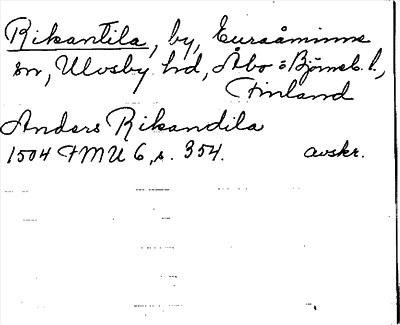 Rikantila, by, Euraåminne
sn, Ulvsby hd, Åbo o Björneb. l.,
Finland
Anders Rikandila
1504 FMU 6, s. 354. avskr.